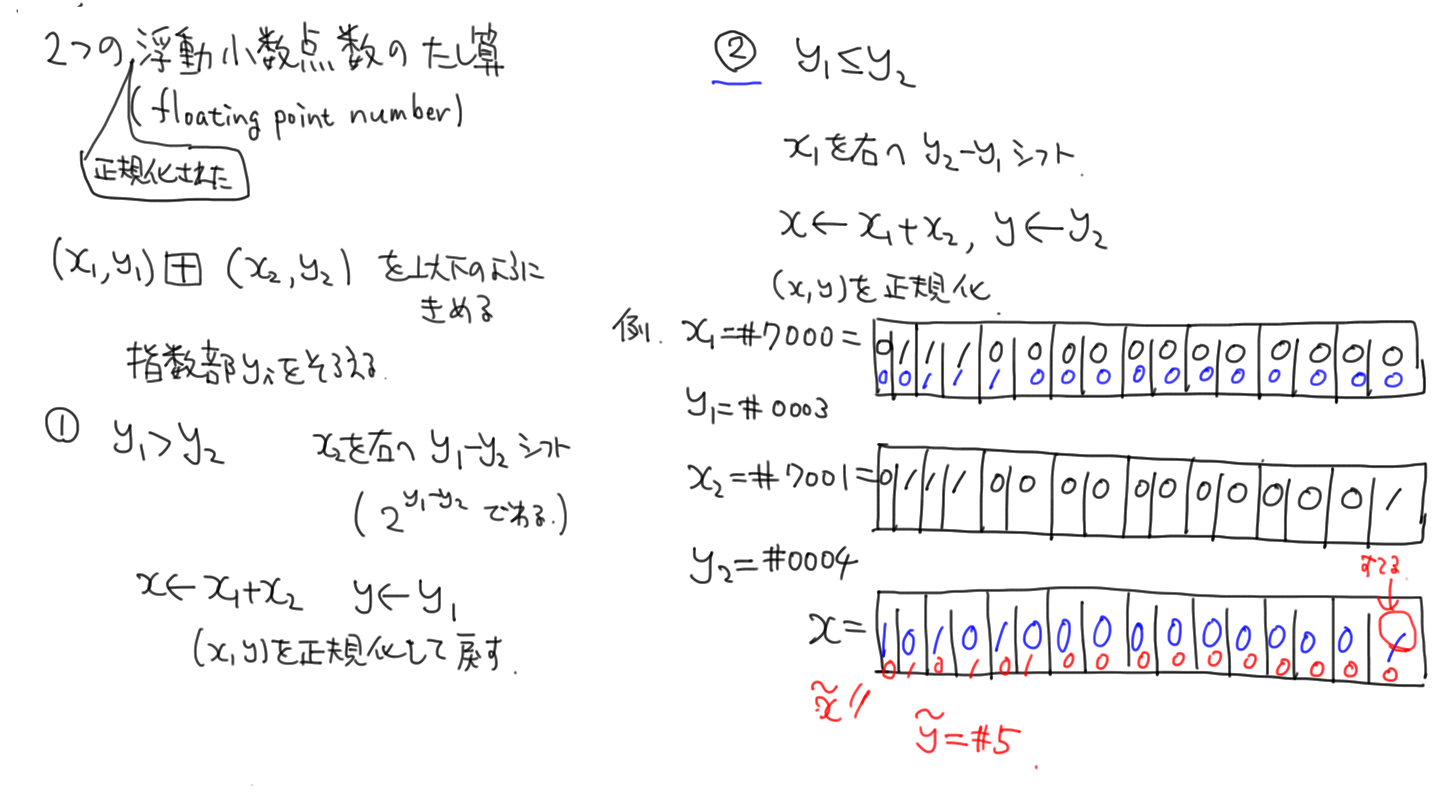 2つの浮動小数点数のたし算
(floating point number)
正規化された
(x₁,y₁)⊞(x₂,y₂) を以下のように
きめる
指数部yᵢをそろえる.
① y₁>y₂ x₂を右へ y₁-y₂ シフト
(2^(y₁-y₂) でわる.)
x←x₁+x₂ y←y₁
(x,y)を正規化して戻す.
② y₁≤y₂
x₁を右へ y₂-y₁シフト.
x←x₁+x₂, y←y₂
(x,y)を正規化.
例. x₁=#7000= 0 1 1 1 0 0 0 0 0 0 0 0 0 0 0 0
0 0 1 1 1 0 0 0 0 0 0 0 0 0 0
y₁=#0003
x₂=#7001= 0 1 1 1 0 0 0 0 0 0 0 0 0 0 0 1
y₂=#0004
すてる.
x= 1 0 1 0 1 0 0 0 0 0 0 0 0 0 0 1
x̃〃 0 1 0 1 0 1 0 0 0 0 0 0 0 0 0 0
ỹ=#5.